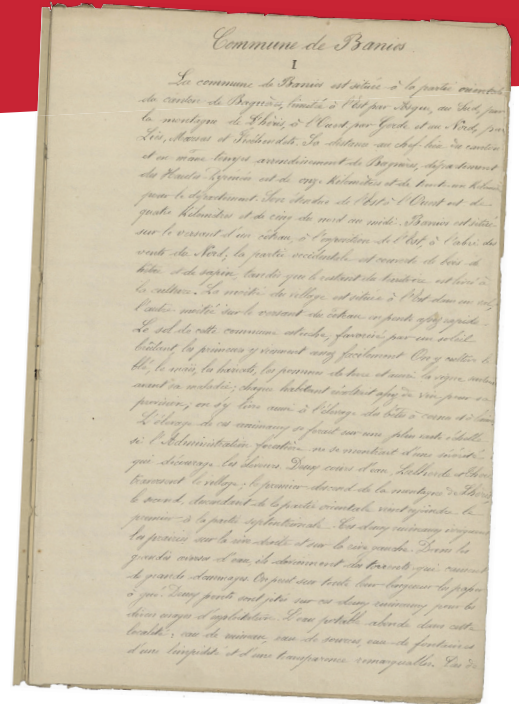 Commune de Banios.
I
La commune de Banios est située à la partie orientale
du canton de Bagnères, limitée à l'Est par Asque, au Sud, par
la montagne de Lhéris, à l'Ouest, par Gerde et au Nord, par
Lies, Marsas et Fréchendets. Sa distance au chef-lieu du canton
et en même temps arrondissement de Bagnères, département
des Hautes-Pyrénées est de onze kilomètres et de trente un kilom
pour le département. Son étendue de l'Est à l'Ouest est de
quatre kilomètres et de cinq du nord au midi. Banios est situé
sur le versant d'un côteau, à l'exposition de l'Est, à l'abri des
vents du Nord; la partie occidentale est couverte de bois de
hêtre et de sapin tandis que le restant du territoire est livré à
la culture. La moitié du village est située à l'Est dans un
l'autre moitié sur le versant du côteau en pente assez rapide.
Le sol de cette commune
brûlant, les primeurs y viennent assez facilement. On y cultive le
blé, le maïs, les haricots, les pommes de terre et aussi la vigne
avant sa maladie; chaque habitant récoltait assez de vin pour sa
provision; on s'y livre aussi à l'élevage des bêtes à cornes et à laine
L'élevage de ces animaux se ferait sur une plus vaste échelle
si l'Administration forestière ne se montrait d'une sévérité
qui décourage les éleveurs. Deux cours d'eau
traversent le village; le premier descend de la montagne de Lhéris
le second, descendant de la partie orientale vient rejoindre le
premier à la partie septentrionale. Ces deux ruisseaux
les prairies sur la rive droite et sur la rive gauche. Dans les
grandes crues d'eau, ils deviennent des torrents qui causent
de grands dommages. On peut sur toute leur longueur les passer
à gué. Deux ponts sont jetés sur ces deux ruisseaux pour les
divers moyens d'exploitation. L'eau potable abonde dans cette
localité; eau de ruisseau, eau de sources, eau de fontaines
d'une limpidité et d'une transparence remarquables.